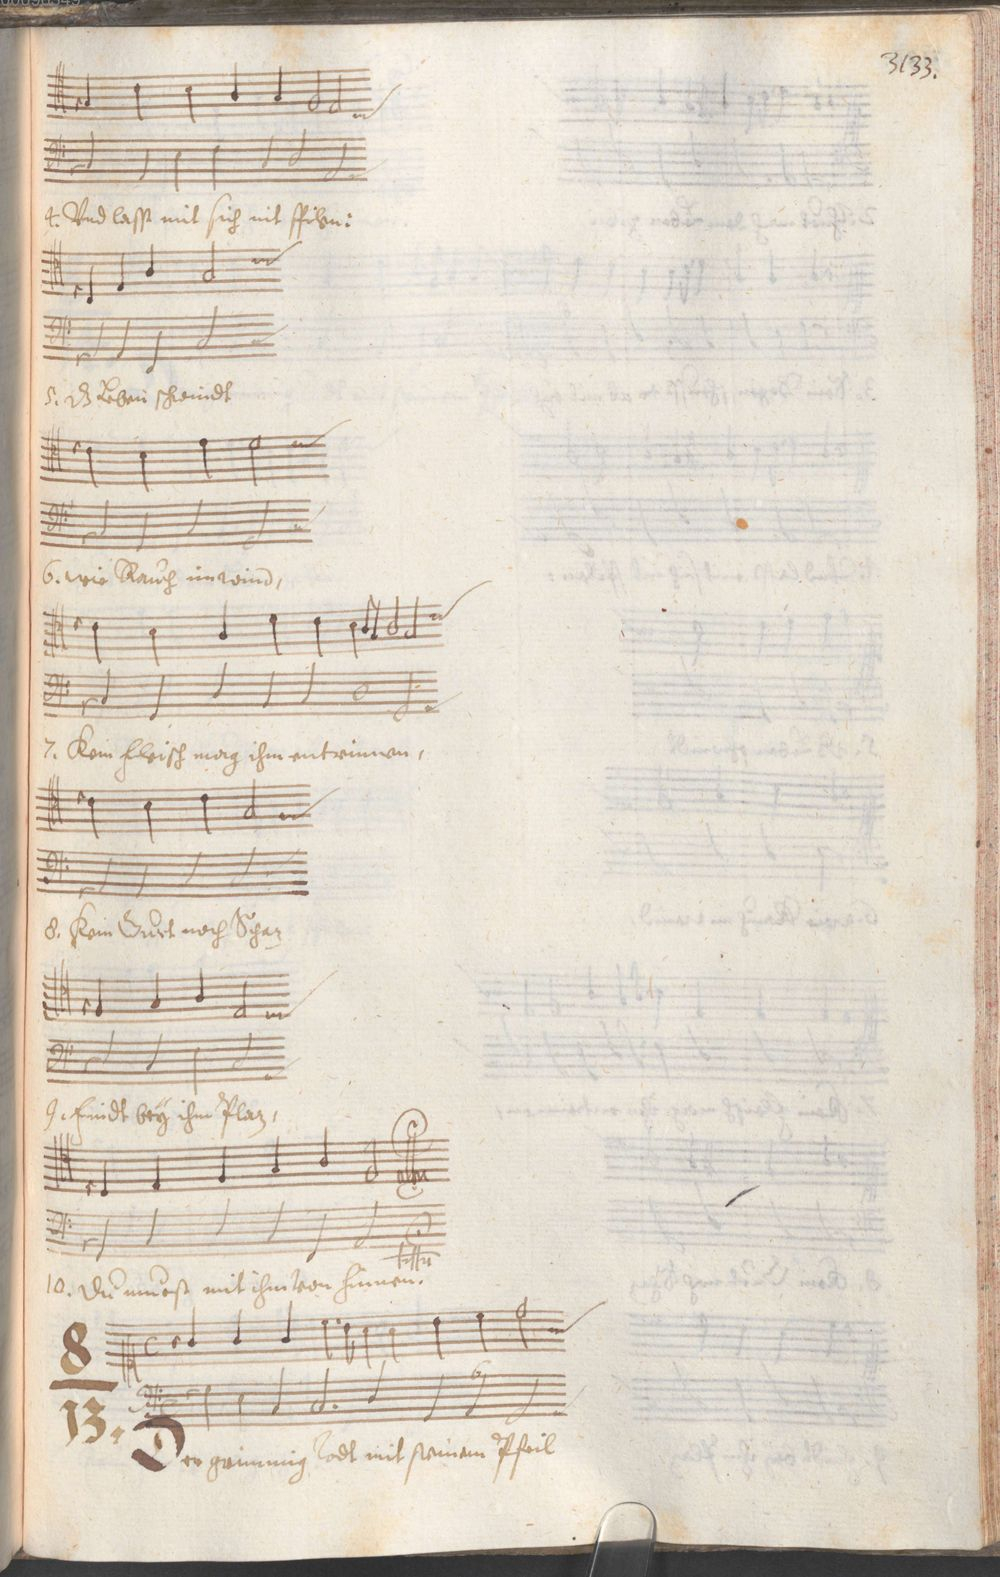 3133.
4. Und lasst mit sich nit schilen:
5. dz Leben schwindt
6. wie Rauch im wind,
7. Kein fleisch mag ihm entrinnen,
8. Kein Guet noch Schaz
9. findt bey ihm Plaz,
10. Du muest mit ihm von hinnen.
8
13.
Der grimmig Todt mit seinem Pfeil